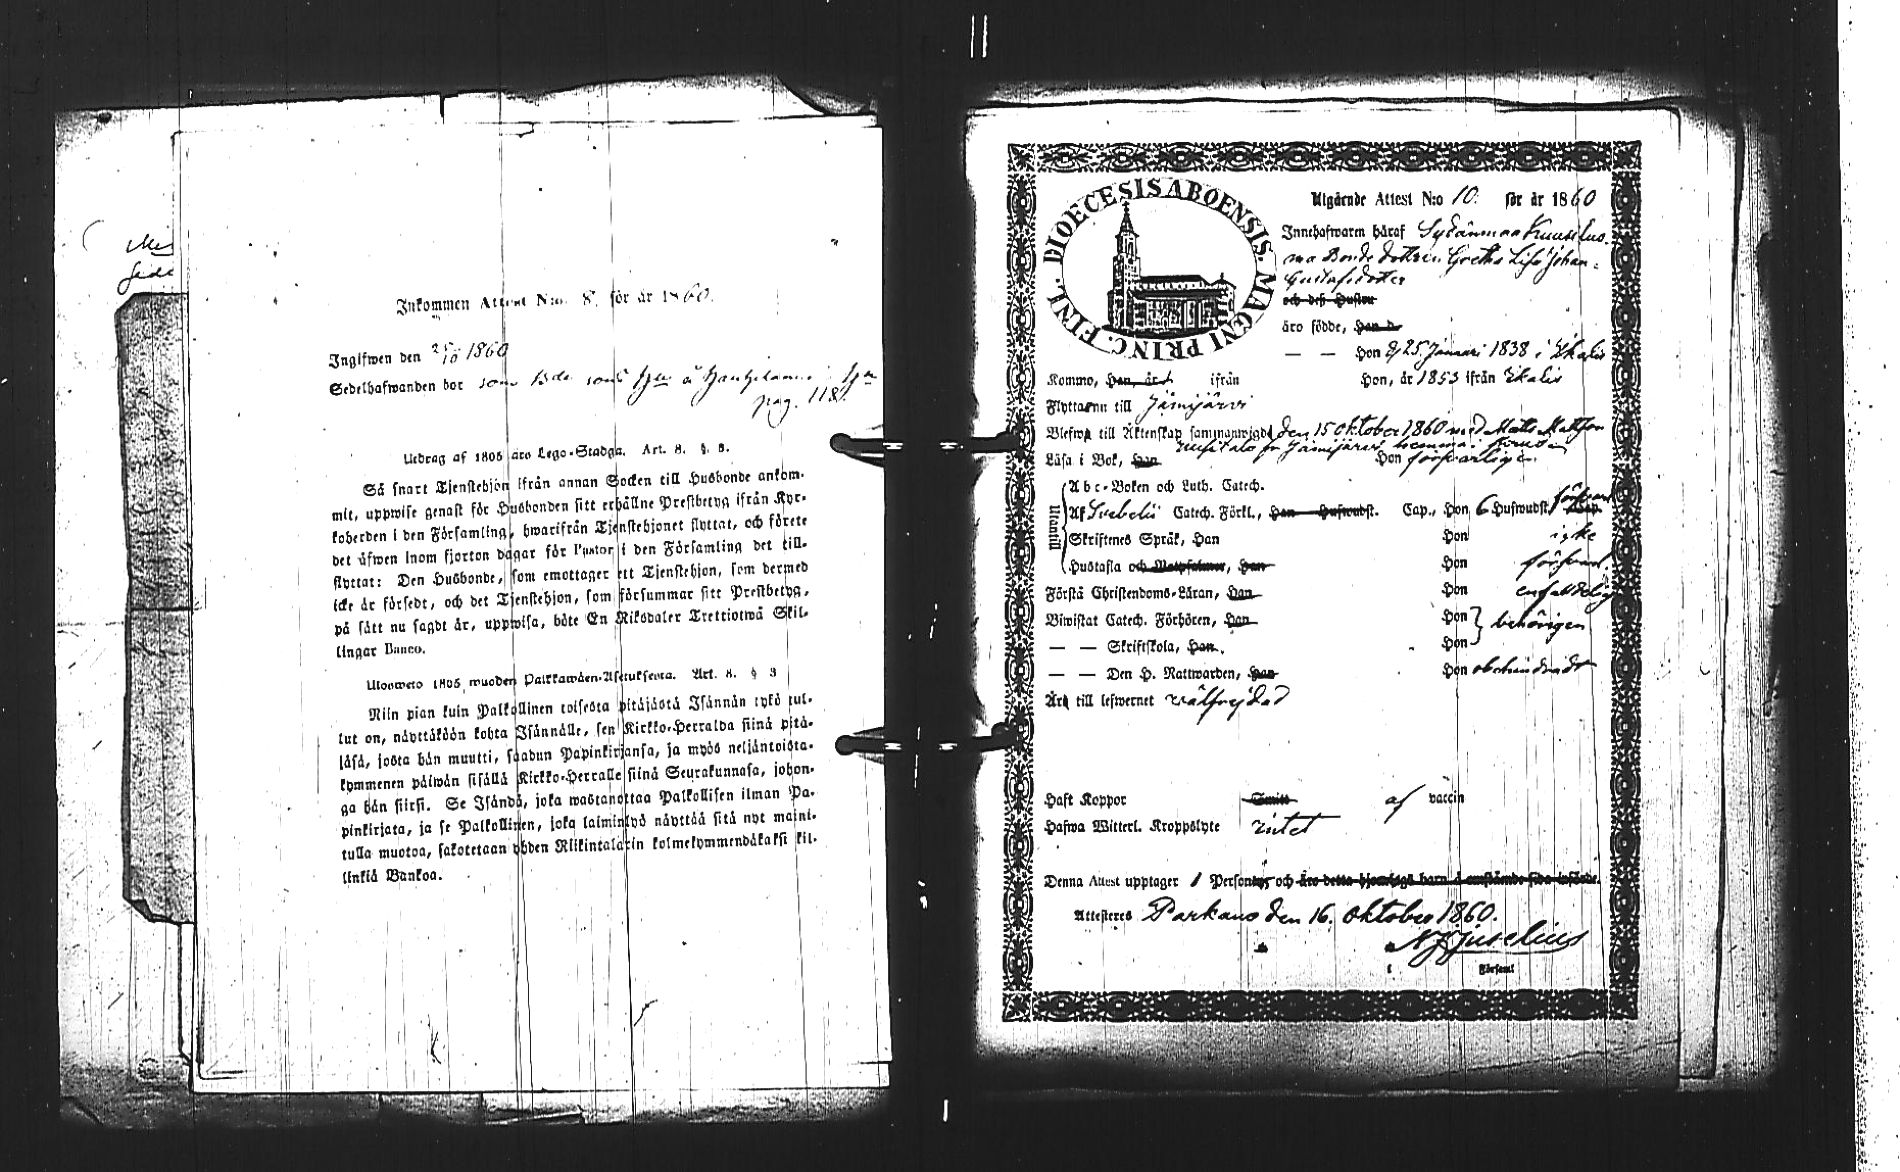 Inkommen Attest N:o 8. för år 1860.
Ingifwen den 25/10 1860
Sedelhafwanden bor som
pag. 118.
Utdrag af 1805 års Lego-Stadga. Art. 8. §. 3.
Så snart Tjenstehjon ifrån annan Socken till Husbonde ankom-
mit, uppwise genast för Husbonden sitt erhållne Prestbetyg ifrån Kyr-
koherden i den Församling, hwarifrån Tjenstehjonet flyttat, och förete
det äfwen inom fjorton dagar för Pastor i den Församling det till-
flyttat: Den Husbonde, som emottager ett Tjenstehjon, som dermed
icke är försedt, och det Tjenstehjon, som försummar sitt Prestbetyg,
på sätt nu sagdt är, uppwisa, böte En Riksdaler Trettiotwå Skil-
lingar Banco.
Ulosweto 1805 wuoden Palkkawäen-Asetuksesta. Art. 8. § 3
Niin pian kuin Palkollinen toisesta pitäjästä Isännän tykö tul-
lut on, näyttäkään kohta Isännälle, sen Kirkko-Herralda siinä pitä-
jäsä, josta hän muutti, saadun Papinkirjansa, ja myös neljäntoista-
kymmenen päiwän sisällä Kirkko-Herralle siinä Seurakunnasa, johon-
ga hän siirsi. Se Isändä, joka wastanottaa Palkollisen ilman Pa-
pinkirjata, ja se Palkollinen, joka laiminlyö näyttää sitä nyt maini-
tulla muotoa, sakotetaan yhden Riikintalarin kolmekymmendäkaksi kil-
linkiä Bankoa.
DIOECESIS ABOENSIS. MAGNI PRINC. FINL.
Utgående Attest N:o 10. för år 1860
Innehafwaren häraf Sydänmaa Kuuselus
ma Bonde dottren Greta Lisa Johan-
Gustafsdotter
och deß Hustru
äro födde, Han d.
— — Hon d. 25 Januari 1838 i Ikalis
Kommo, Han, år ifrån Hon, år 1853 ifrån Ikalis
Flyttar nu till Jämijärvi
Blefwo till Äktenskap sammanwigde den 15 Oktober 1860 med Matts Mattsson
Uusitalo fr Jämijärvi
Läsa i Bok, Han Hon försvarligen
Utantill
Abc-Boken och Luth. Catech.
Af Svebelii Catech. Förkl., Han Hufwudst. Cap., Hon 6 Hufwudst. Cap. försvarl
Skriftenes Språk, Han Hon icke
Hustafla och Botpsalmer, Han Hon försvarl.
Förstå Christendoms-Läran, Han Hon enfaldelig
Biwistat Catech. Förhören, Han Hon } behörigen
— — Skriftskola, Han Hon
— — Den H. Nattwarden, Han Hon obehindradt
Äro till lefwernet wälfrejdad
Haft Koppor Smitt af vaccin
Hafwa Witterl. Kroppslyte intet
Denna Attest upptager 1 Personer, och äro detta hjonelags barn å omstående sida införde.
Attesteres Parkano den 16. Oktober 1860.
Juselius
i Församl